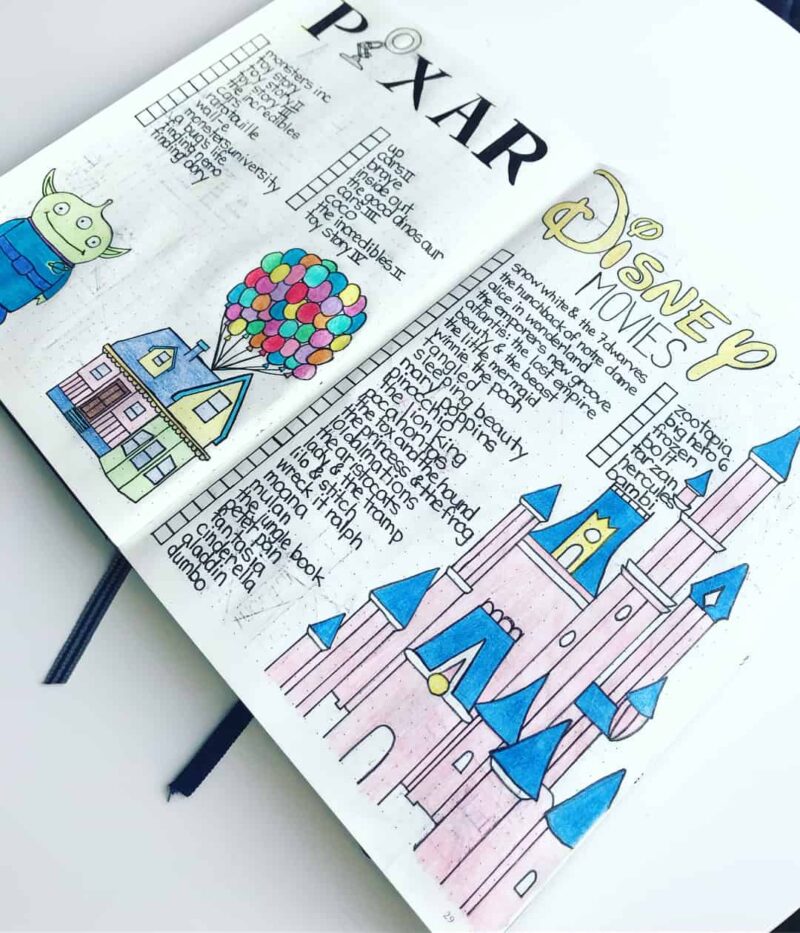 PIXAR
monsters inc
toy story
toy story II
toy story III
the incredibles
cars
ratatouille
wall-e
monsters university
a bug's life
finding nemo
finding dory
up
cars II
brave
inside out
the good dinosaur
cars III
coco
the incredibles II
toy story IV
Disney
MOVIES
snow white & the 7 dwarves
the hunchback of notre dame
alice in wonderland
the emporer's new groove
atlantis: the lost empire
beauty & the beast
the little mermaid
winnie the pooh
tangled
sleeping beauty
mary poppins
pinocchio
lion king
pocahontas
the fox and the hound
the princess & the frog
101 dalmations
the aristocats
lady & the tramp
lilo & stitch
wreck it ralph
moana
mulan
the jungle book
peter pan
fantasia
cinderella
aladdin
dumbo
zootopia
big hero 6
frozen
bolt
tarzan
hercules
bambi
29